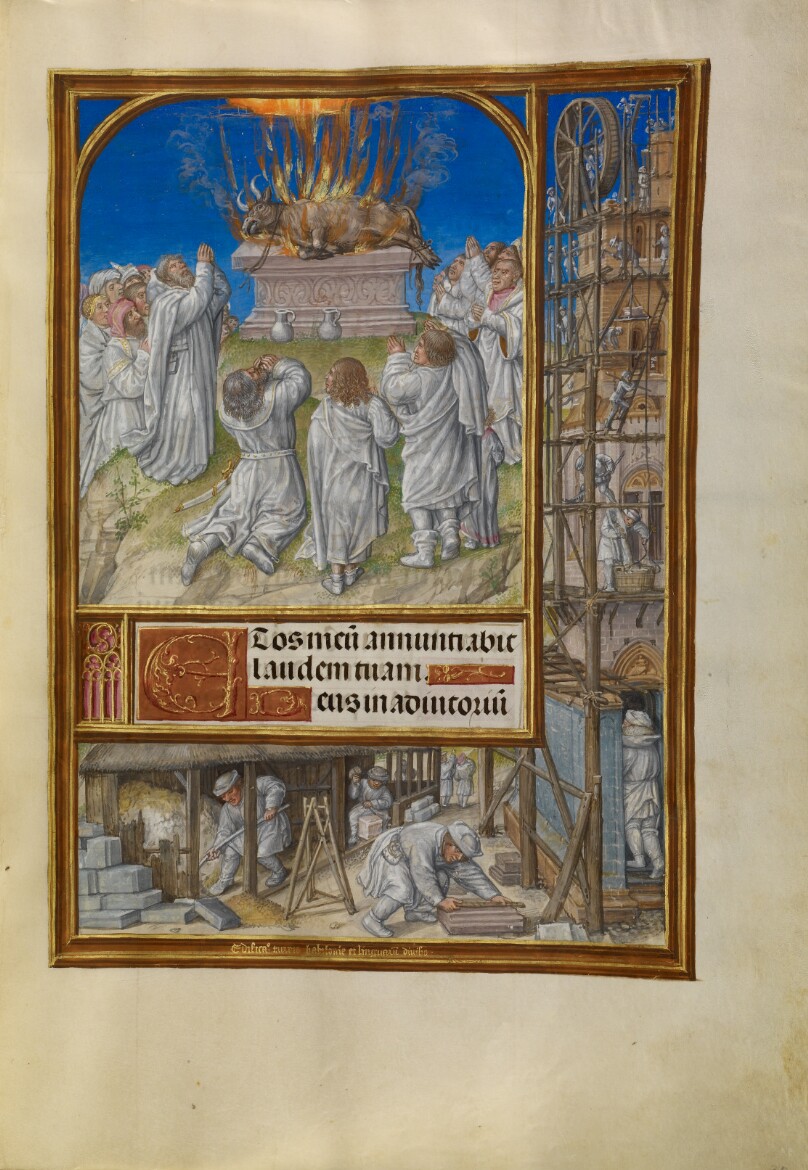 Et os meū annuntiabit
laudem tuam.
Deus in adiutoriū
Edificaº turris babilonie et linguarū diuisio